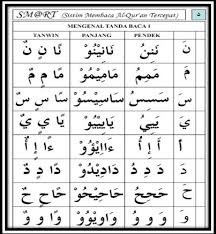 SM@RT (Sistim Membaca Al-Qur'an Tercepat) ٥
MENGENAL TANDA BACA 1
TANWIN PANJANG PENDEK
نَ نَنِنُ نَانِيْنُوْ نًا نٍ نٌ
مَ مَمِمُ مَامِيْمُوْ مًا مٍ مٌ
سَ سَسِسُ سَاسِيْسُوْ سًا سٍ سٌ
يَ يَيِيُ يَايِيْيُوْ يًا يٍ يٌ
أَ أَ إِ أُ ءَاإِيْؤُوْ ءًا إٍ ءٌ
دَ دَ دِ دُ دَادِيْدُوْ دًا دٍ دٌ
حَ حَحِحُ حَاحِيْحُوْ حًا حٍ حٌ
وَ وَ وِ وُ وَاوِيْوُوْ وًا وٍ وٌ